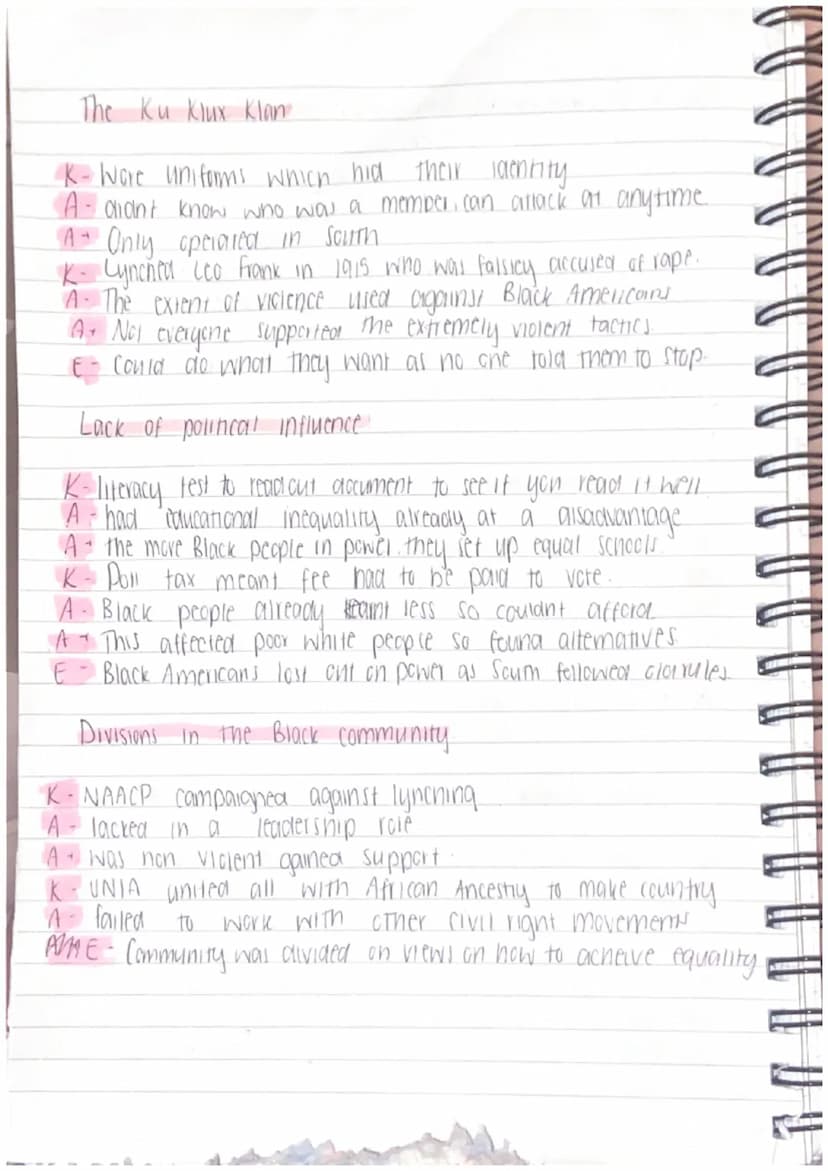 The Ku Klux Klan
K- Wore uniforms which hid their identity
A- didnt know who was a member, can attack at anytime
A+ Only operated in South
K- Lynched Leo Frank in 1915 who was falsley accused of rape.
A- The extent of violence used against Black Americans
A+ Not everyone supported the extremely violent tactics.
E- Could do what they want as no one told them to stop.
Lack of political influence
K- literacy test to read out document to see if you read it well
A- had educational inequality already at a disadvantage
A+ the more Black people in power, they set up equal schools
K- Poll tax meant fee had to be paid to vote.
A- Black people already earnt less so couldnt afford
A+ This affected poor white people so found alternatives
E- Black Americans lost out on power as South followed own rules
Divisions in the Black community
K- NAACP campaigned against lynching
A- lacked in a leadership role
A+ was non violent gained support.
K- UNIA united all with African Ancestry to make country
A- failed to work with other civil right movements
E- Community was divided on views on how to acheive equality